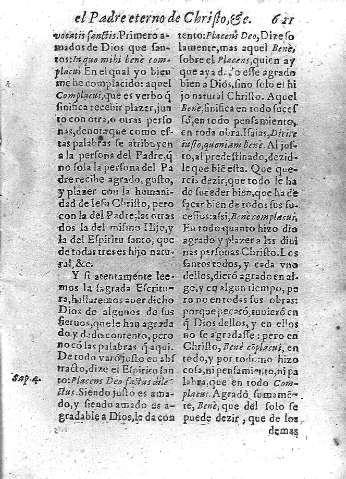 el Padre eterno de Christo, &c. 621
vocatis sanctis. Primero a-
mados de Dios que san-
tos: In quo mihi bene com-
placui En el qual yo bien
me he complacido: aquel
Complacui, que es verbo q̃
significa recebir plazer, jun-
to con otra, o otras perso
nas, denota que como es-
tas palabras se atribuyen
a la persona del Padre, q̃
no sola la persona del Pa
dre recibe agrado, gusto,
y plazer con la humani-
dad de Iesu Christo, pero
con la del Padre las otras
dos la del mismo Hijo, y
la del Espiritu santo, que
de todas tres es hijo natu-
ral, &c.
Y si atentamente lee-
mos la sagrada Escritu-
ra, hallaremos auer dicho
Dios de algunos de sus
sieruos, que le han agrada
do y dado contento, pero
no cõ las palabras q̃ aqui.
De todo varõ justo en abs
tracto, dize el Espiritu san
to: Placens Deo factus dile-
ctus. Siendo justo es ama-
do, y siendo amado es a-
gradable a Dios, le da con
Sap. 4.
tento: Placens Deo, Dize so
lamente, mas aquel Bene,
sobre el Placens, quien ay
que aya d. o esse agrado
bien a Dios, sino solo el hi
jo natural Christo. Aquel
Bene, sinifica en todo suces
so, en todo pensamiento,
en toda obra. Isaias, Dicite
iusto, quoniam bene. Al jus-
to, al predestinado, dezid-
le que bien esta. Que que-
reis dezir, que todo le ha
de suceder bien, que ha de
sacar bien de todos sus su-
cessos: assi, Bene complacui,
En todo quanto hizo dio
agrado y plazer a las diui
nas personas Christo. Los
santos todos, y cada vno
dellos, dierõ agrado en al-
go, y en algun tiempo, pe
ro no en todas sus obras:
porque pecarõ, tuuierõ en
q̃ Dios dellos, y en ellos
no se agradasse: pero en
Christo, Bene cõplacui, en
todo, y por todo no hizo
cosa, ni pensamiento, ni pa
labra, que en todo Com-
placui. Agradò sumamẽ-
te, Bene, que del solo se
puede dezir, que de los
demas